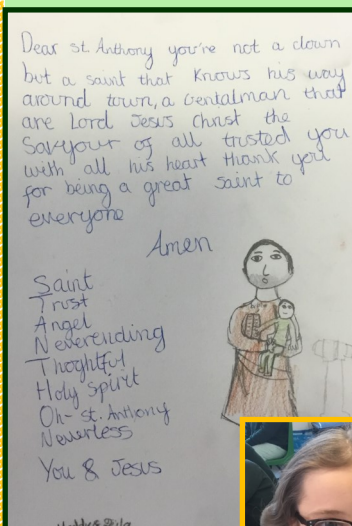 Dear St. Anthony you're not a clown
but a saint that knows his way
around town, a Gentalman that
are Lord Jesus Christ the
Savyour of all trusted you
with all his heart thank you
for being a great saint to
everyone
Amen
Saint
Trust
Angel
Neverending
Thoghtful
Holy Spirit
Oh- St. Anthony
Neverless
You & Jesus